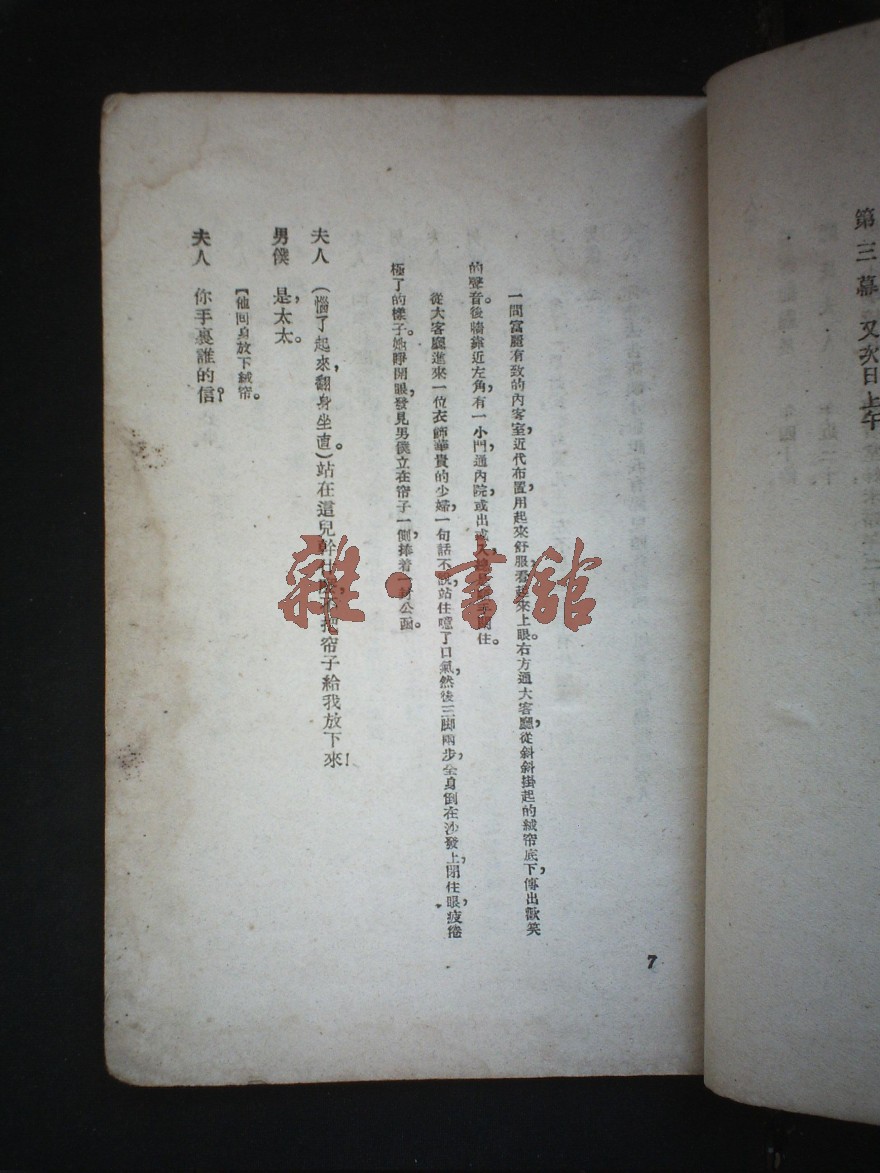 第三幕 又次日上午
一間富麗有致的內客室，近代布置，用起來舒服，看起來上眼。右方通大客廳，從斜斜掛起的絨帘底下，傳出歡笑
的聲音。後牆靠近左角，有一小門通內院，或出或入，總是隨手閉住。
從大客廳進來一位衣飾華貴的少婦，一句話不說，站住噓了口氣，然後三脚兩步，全身倒在沙發上，閉住眼，疲倦
極了的樣子。她睜開眼，發見男僕立在帘子一側，捧着一封公函。
夫人 （惱了起來，翻身坐直。）站在這兒幹什麼，不把帘子給我放下來！
男僕 是，太太。
【他回身放下絨帘。
夫人 你手裏誰的信？
7
雜·書館